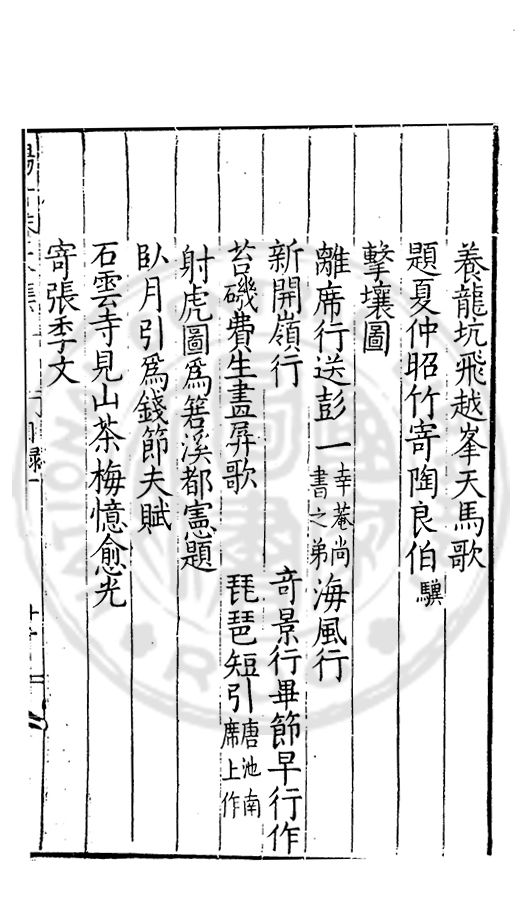 養龍坑飛越峯天馬歌
題夏仲昭竹寄陶良伯驥
擊壤圖
離席行送彭一幸菴尚書之弟 海風行
新開嶺行 奇景行畢節早行作
苔磯費生畫屏歌 琵琶短引唐池南席上作
射虎圖爲箬溪都憲題
臥月引爲錢節夫賦
石雲寺見山茶梅憶愈光
寄張季文